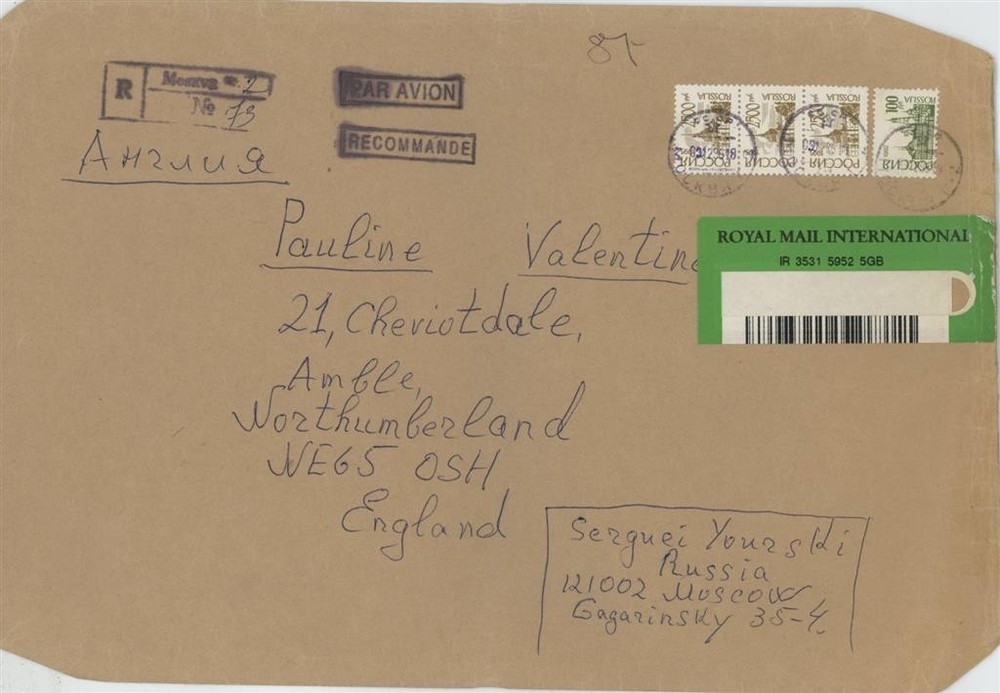 87-
R Москва 2
№ 73
PAR AVION
RECOMMANDE
Англия
2500 ROSSIA РОССИЯ
2500 ROSSIA РОССИЯ
2500 ROSSIA РОССИЯ
100 ROSSIA РОССИЯ
МОСКВА
ROYAL MAIL INTERNATIONAL
IR 3531 5952 5GB
Pauline Valentin
21, Cheviotdale,
Amble,
Northumberland
NE65 OSH
England
Serguei Yourski
Russia
121002 Moscow
Gagarinsky 35-4